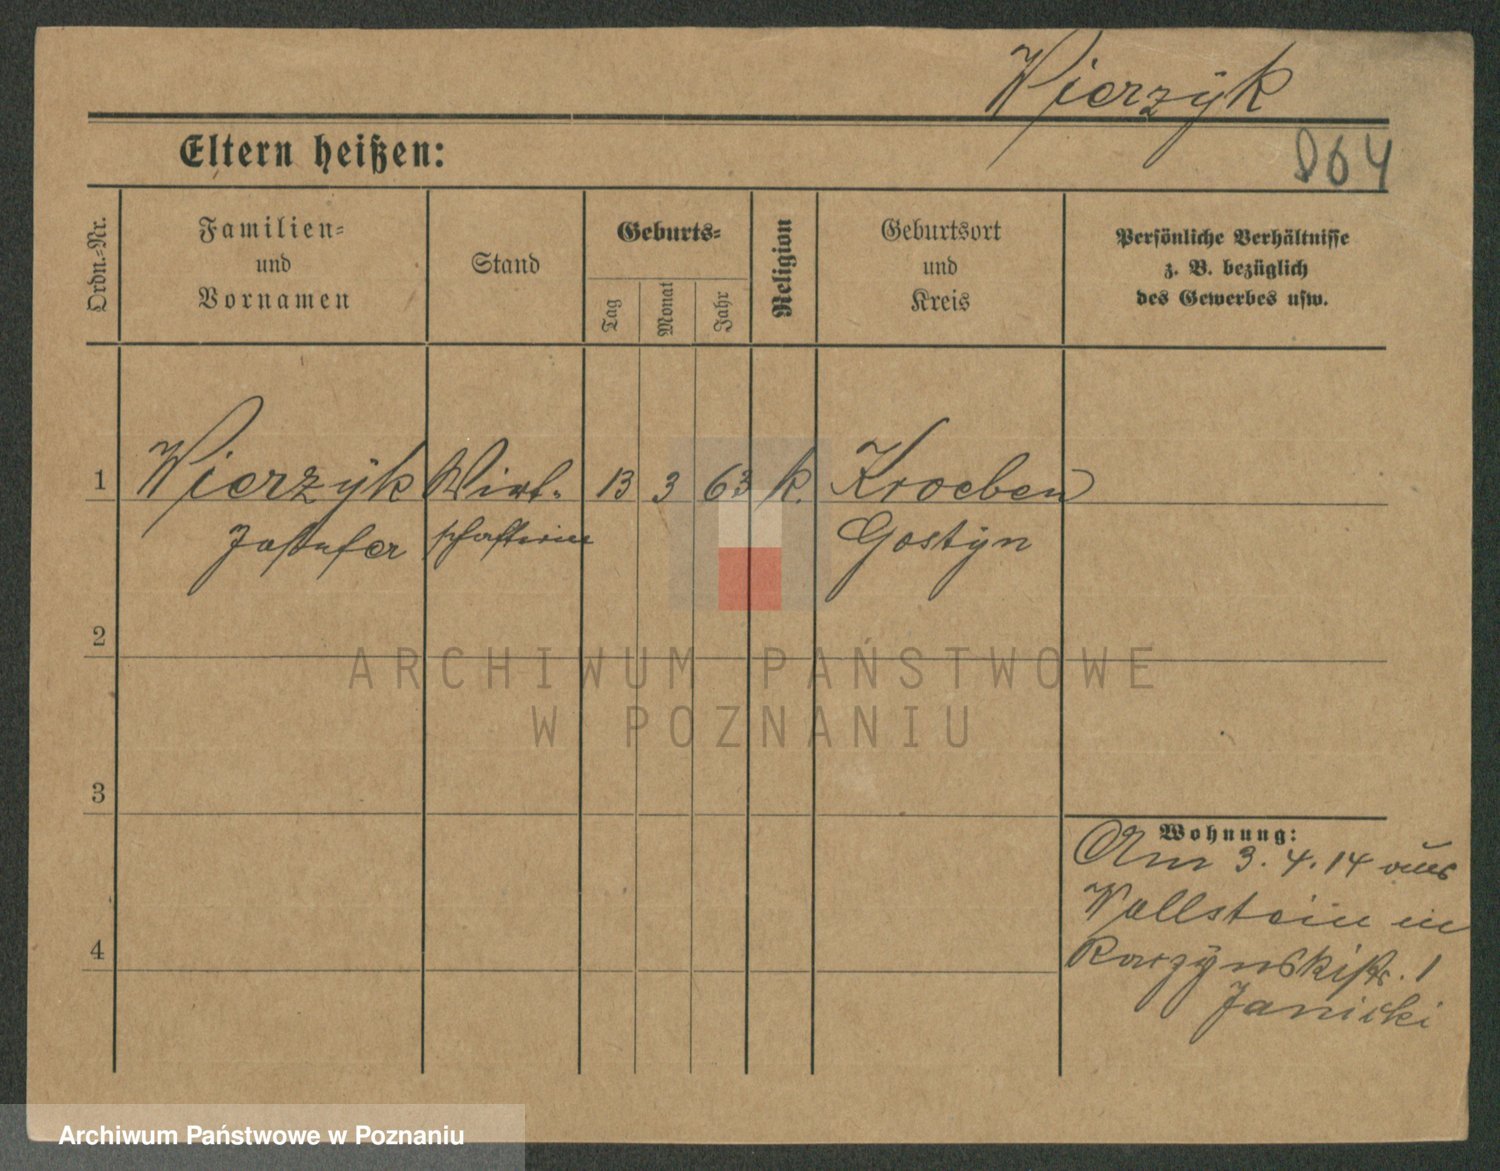 Wierzÿk
864
Eltern heißen:
Ordn.-Nr.
Familien-
und
Vornamen
Stand
Geburts-
Tag
Monat
Jahr
Religion
Geburtsort
und
Kreis
Persönliche Verhältnisse
z. B. bezüglich
des Gewerbes usw.
1
Wierzÿk
Wirt-
13
3
63
k.
Kroeben
schafterin
Gostÿn
2
ARCHIWUM PAŃSTWOWE
W POZNANIU
3
Wohnung:
Am 3.4.14 aus
Wollstein in
4
Raczÿnskistr. 1
Janicki
Archiwum Państwowe w Poznaniu